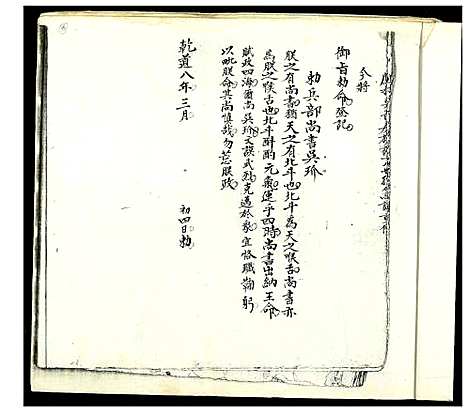 今將
御旨勅命登記
勅兵部尚書吳玠
朕之有尚書猶天之有北斗也北斗為天之喉舌尚書亦
為朕之喉舌也北斗斟酌元氣運乎四時尚書出納王命
賦政四海爾尚吳玠文謨武烈克邁於眾宜恪職鞠躬
以毗朕命其尚慎哉勿怠朕政
乾道八年三月 初四日勅